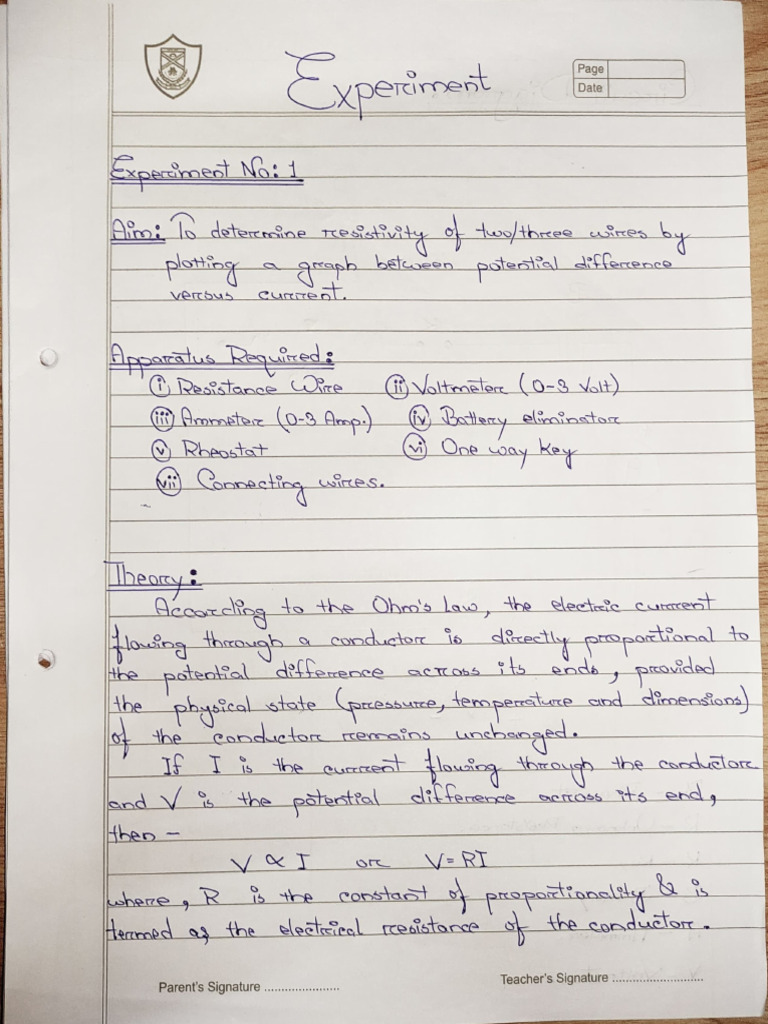 Experiment
Page
Date
Experiment No: 1
Aim: To determine resistivity of two/three wires by
plotting a graph between potential difference
versus current.
Apparatus Required:
(i) Resistance Wire (ii) Voltmeter (0-3 Volt)
(iii) Ammeter (0-3 Amp.) (iv) Battery eliminator
(v) Rheostat (vi) One way key
(vii) Connecting wires.
Theory:
According to the Ohm's Law, the electric current
flowing through a conductor is directly proportional to
the potential difference across its ends, provided
the physical state (pressure, temperature and dimensions)
of the conductor remains unchanged.
If I is the current flowing through the conductor
and V is the potential difference across its end,
then -
V ∝ I or V = RI
where, R is the constant of proportionality & is
termed as the electrical resistance of the conductor.
Parent's Signature ......................
Teacher's Signature :..........................